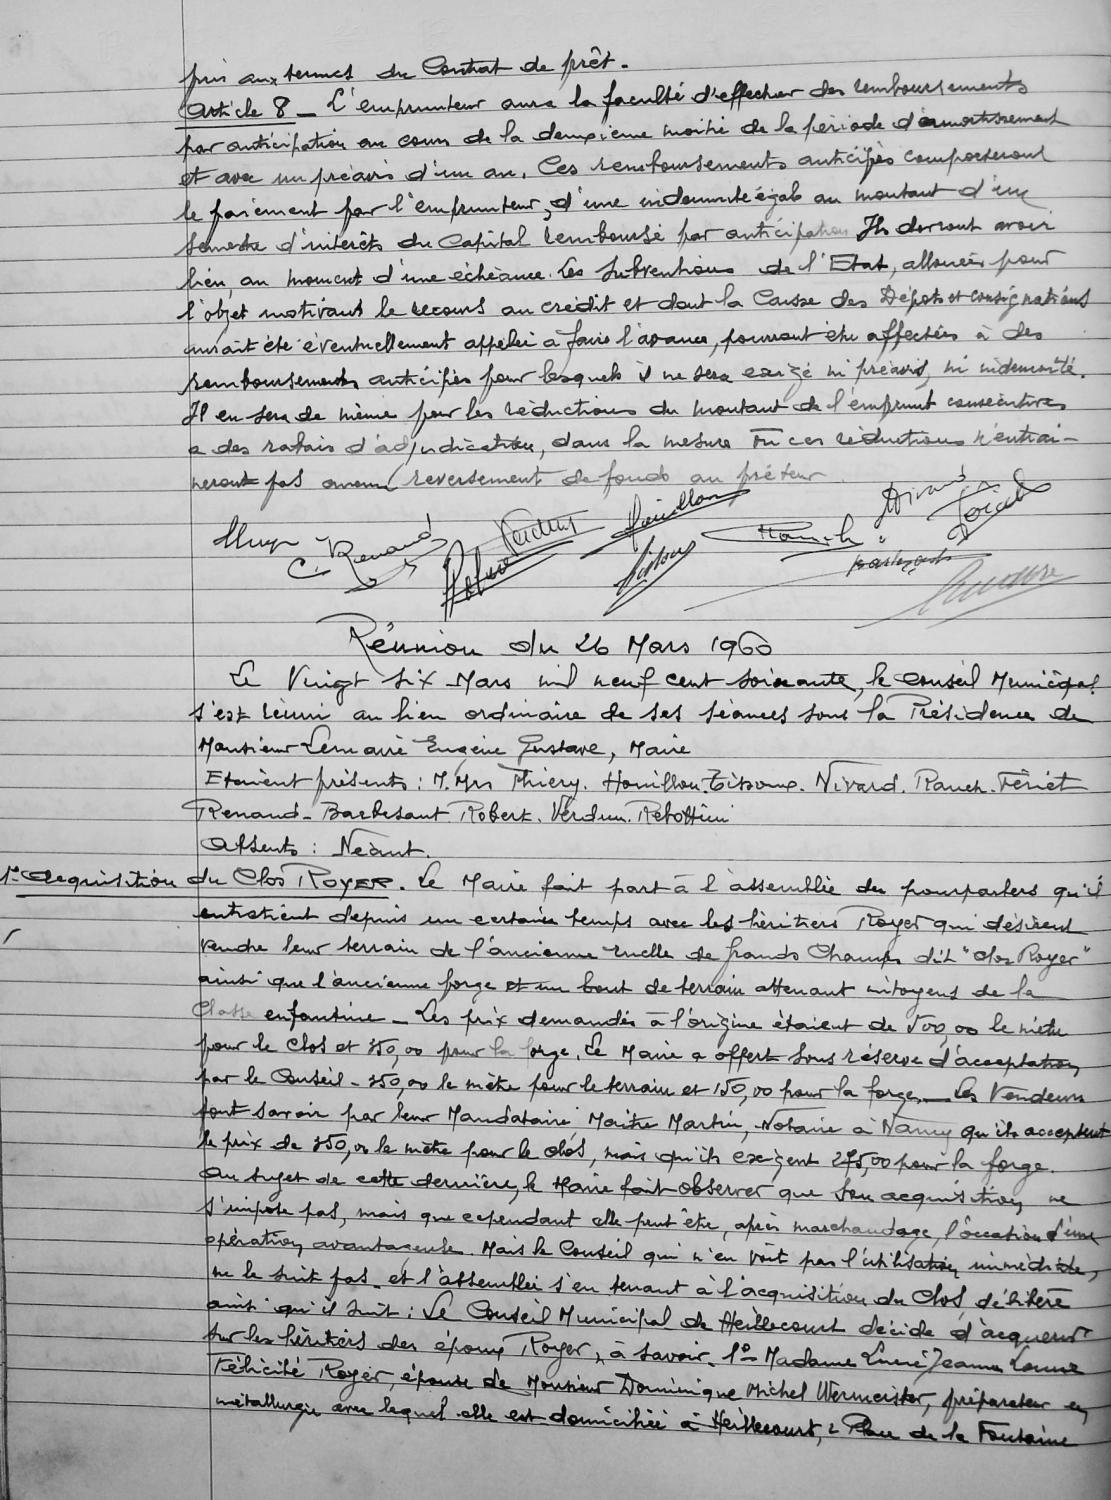 pris aux termes du Contrat de prêt.
Article 8 _ L'emprunteur aura la faculté d'effectuer des remboursements
par anticipation au cours de la deuxième moitié de la période d'amortissement
et avec un préavis d'un an. Ces remboursements anticipés comporteront
le paiement par l'emprunteur, d'une indemnité égale au montant d'un
semestre d'intérêts du Capital remboursé par anticipation Ils devront avoir
lieu, au moment d'une échéance. Les Subventions de l'Etat, allouées pour
l'objet motivant le recours au crédit et dont la Caisse des Dépôts et consignations
aurait été éventuellement appelée à faire l'avance, pourront être affectées à des
remboursements anticipés pour lesquels il ne sera exigé ni préavis, ni indemnité.
Il en sera de même pour les réductions du montant de l'emprunt consécutives
a des rabais d'adjudication, dans la mesure où ces réductions n'entrai-
neront pas aucun reversement de fonds au prêteur
C. Renaud Verdun Houillon Rauch Nivard Fériet
Barbezant
Réunion du 26 Mars 1960
Le Vingt Six Mars mil neuf cent soixante, le Conseil Municipal
s'est réuni au lieu ordinaire de ses séances sous la Présidence de
Monsieur Lemaire Eugène Gustave, Maire
Etaient présents : M.Mrs Thiery. Houillon. Titoux. Nivard. Rauch. Fériet
Renaud - Barbesant. Robert. Verdun. Rebottini
Absents : Néant.
1° Acquisition du Clos ROYER. Le Maire fait part à l'assemblée des pourparlers qu'il
entretient depuis un certain temps avec les héritiers Royer qui désirent
vendre leur terrain de l'ancienne ruelle de grands Champs dit "clos Royer"
ainsi que l'ancienne forge et un bout de terrain attenant mitoyens de la
Classe enfantine _ Les prix demandés à l'origine étaient de 500,00 le mètre
pour le Clos et 350,00 pour la forge. Le Maire a offert sous réserve d'acceptation
par le Conseil - 350,00 le mètre pour le terrain et 150,00 pour la forge _ Les Vendeurs
font savoir par leur Mandataire Maître Martin, Notaire à Nancy qu'ils acceptent
le prix de 350,00 le mètre pour le clos, mais qu'ils exigent 275,00 pour la forge.
Au sujet de cette dernière, le Maire fait observer que son acquisition ne
s'impose pas, mais que cependant elle peut être, après marchandage, l'occasion d'une
opération avantageuse. Mais le Conseil qui n'en voit pas l'utilisation immédiate,
ne le suit pas et l'assemblée s'en tenant à l'acquisition du Clos, délibère
ainsi qu'il suit : Le Conseil Municipal de Heillecourt décide d'acquérir
sur les héritiers des époux Royer, à savoir. 1° Madame Jeanne Louise
Félicité Royer, épouse de Monsieur Dominique Michel Wermeister, préparateur en
métallurgie avec lequel elle est domiciliée à Heillecourt, 2 Place de la Fontaine